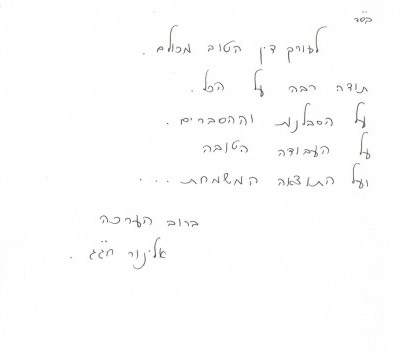 בס"ד
לעורך דין הטוב מכולם.
תודה רבה על הכל.
על הסבלנות וההסברים.
על העבודה הטובה
ועל התוצאה המשמחת...
ברוב הערכה
אלינור חג'ג.